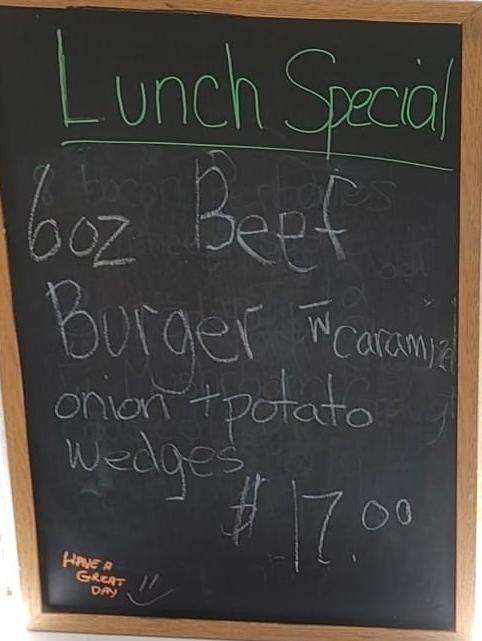 Lunch Special
6oz Beef
Burger w̄ caramizd
onion + potato
wedges
$17.00
HAVE A
GREAT
DAY